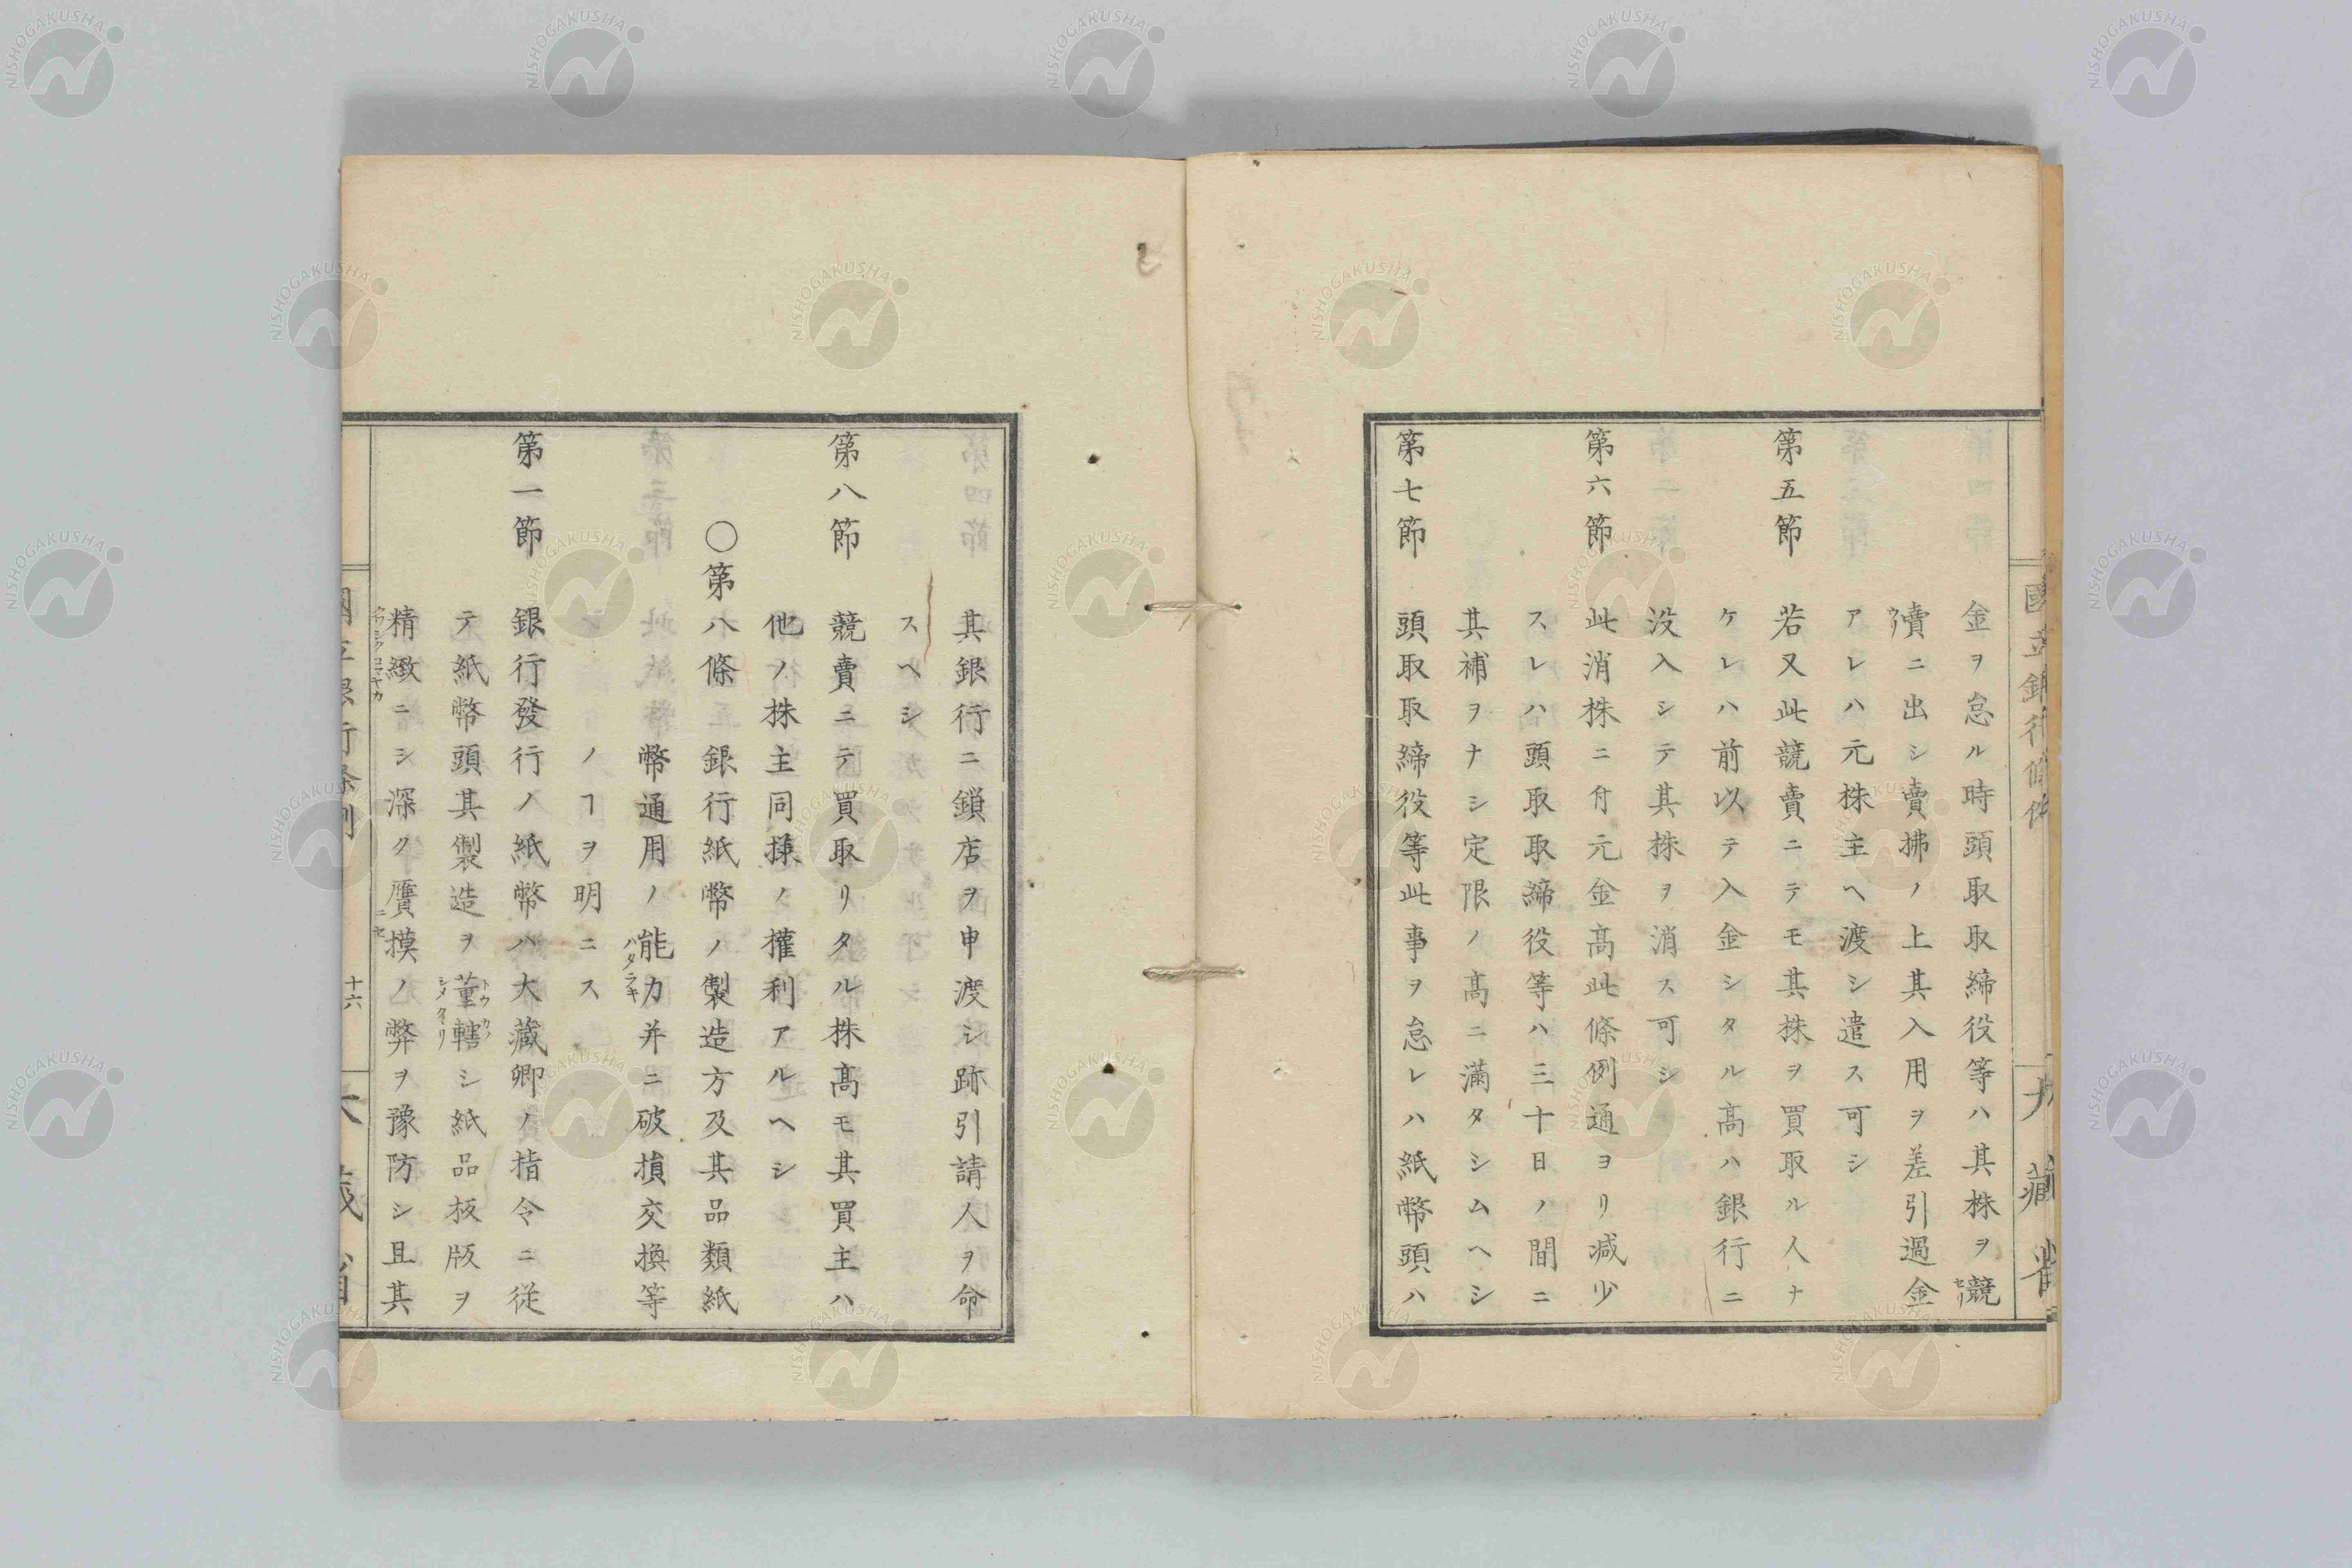 金ヲ怠ル時頭取取締役等ハ其株ヲ競
賣ニ出シ賣拂ノ上其入用ヲ差引過金
アレハ元株主ヘ渡シ遣ス可シ
第五節 若又此競賣ニテモ其株ヲ買取ル人ナ
ケレハ前以テ入金シタル高ハ銀行ニ
没入シテ其株ヲ消ス可シ
第六節 此消株ニ付元金高此條例通ヨリ減少
スレハ頭取取締役等ハ三十日ノ間ニ
其補ヲナシ定限ノ高ニ滿タシムヘシ
第七節 頭取取締役等此事ヲ怠レハ紙幣頭ハ
其銀行ニ鎖店ヲ申渡シ跡引請人ヲ命
スヘシ
第八節 競賣ニテ買取リタル株高モ其買主ハ
他ノ株主同樣ノ權利アルヘシ
〇第八條 銀行紙幣ノ製造方及其品類紙
幣通用ノ能力并ニ破損交換等
ノヿヲ明ニス
第一節 銀行發行ノ紙幣ハ大藏卿ノ指令ニ從
テ紙幣頭其製造ヲ董轄シ紙品板版ヲ
精緻ニシ深ク贋摸ノ弊ヲ豫防シ且其
十六
NISHOGAKUSHA